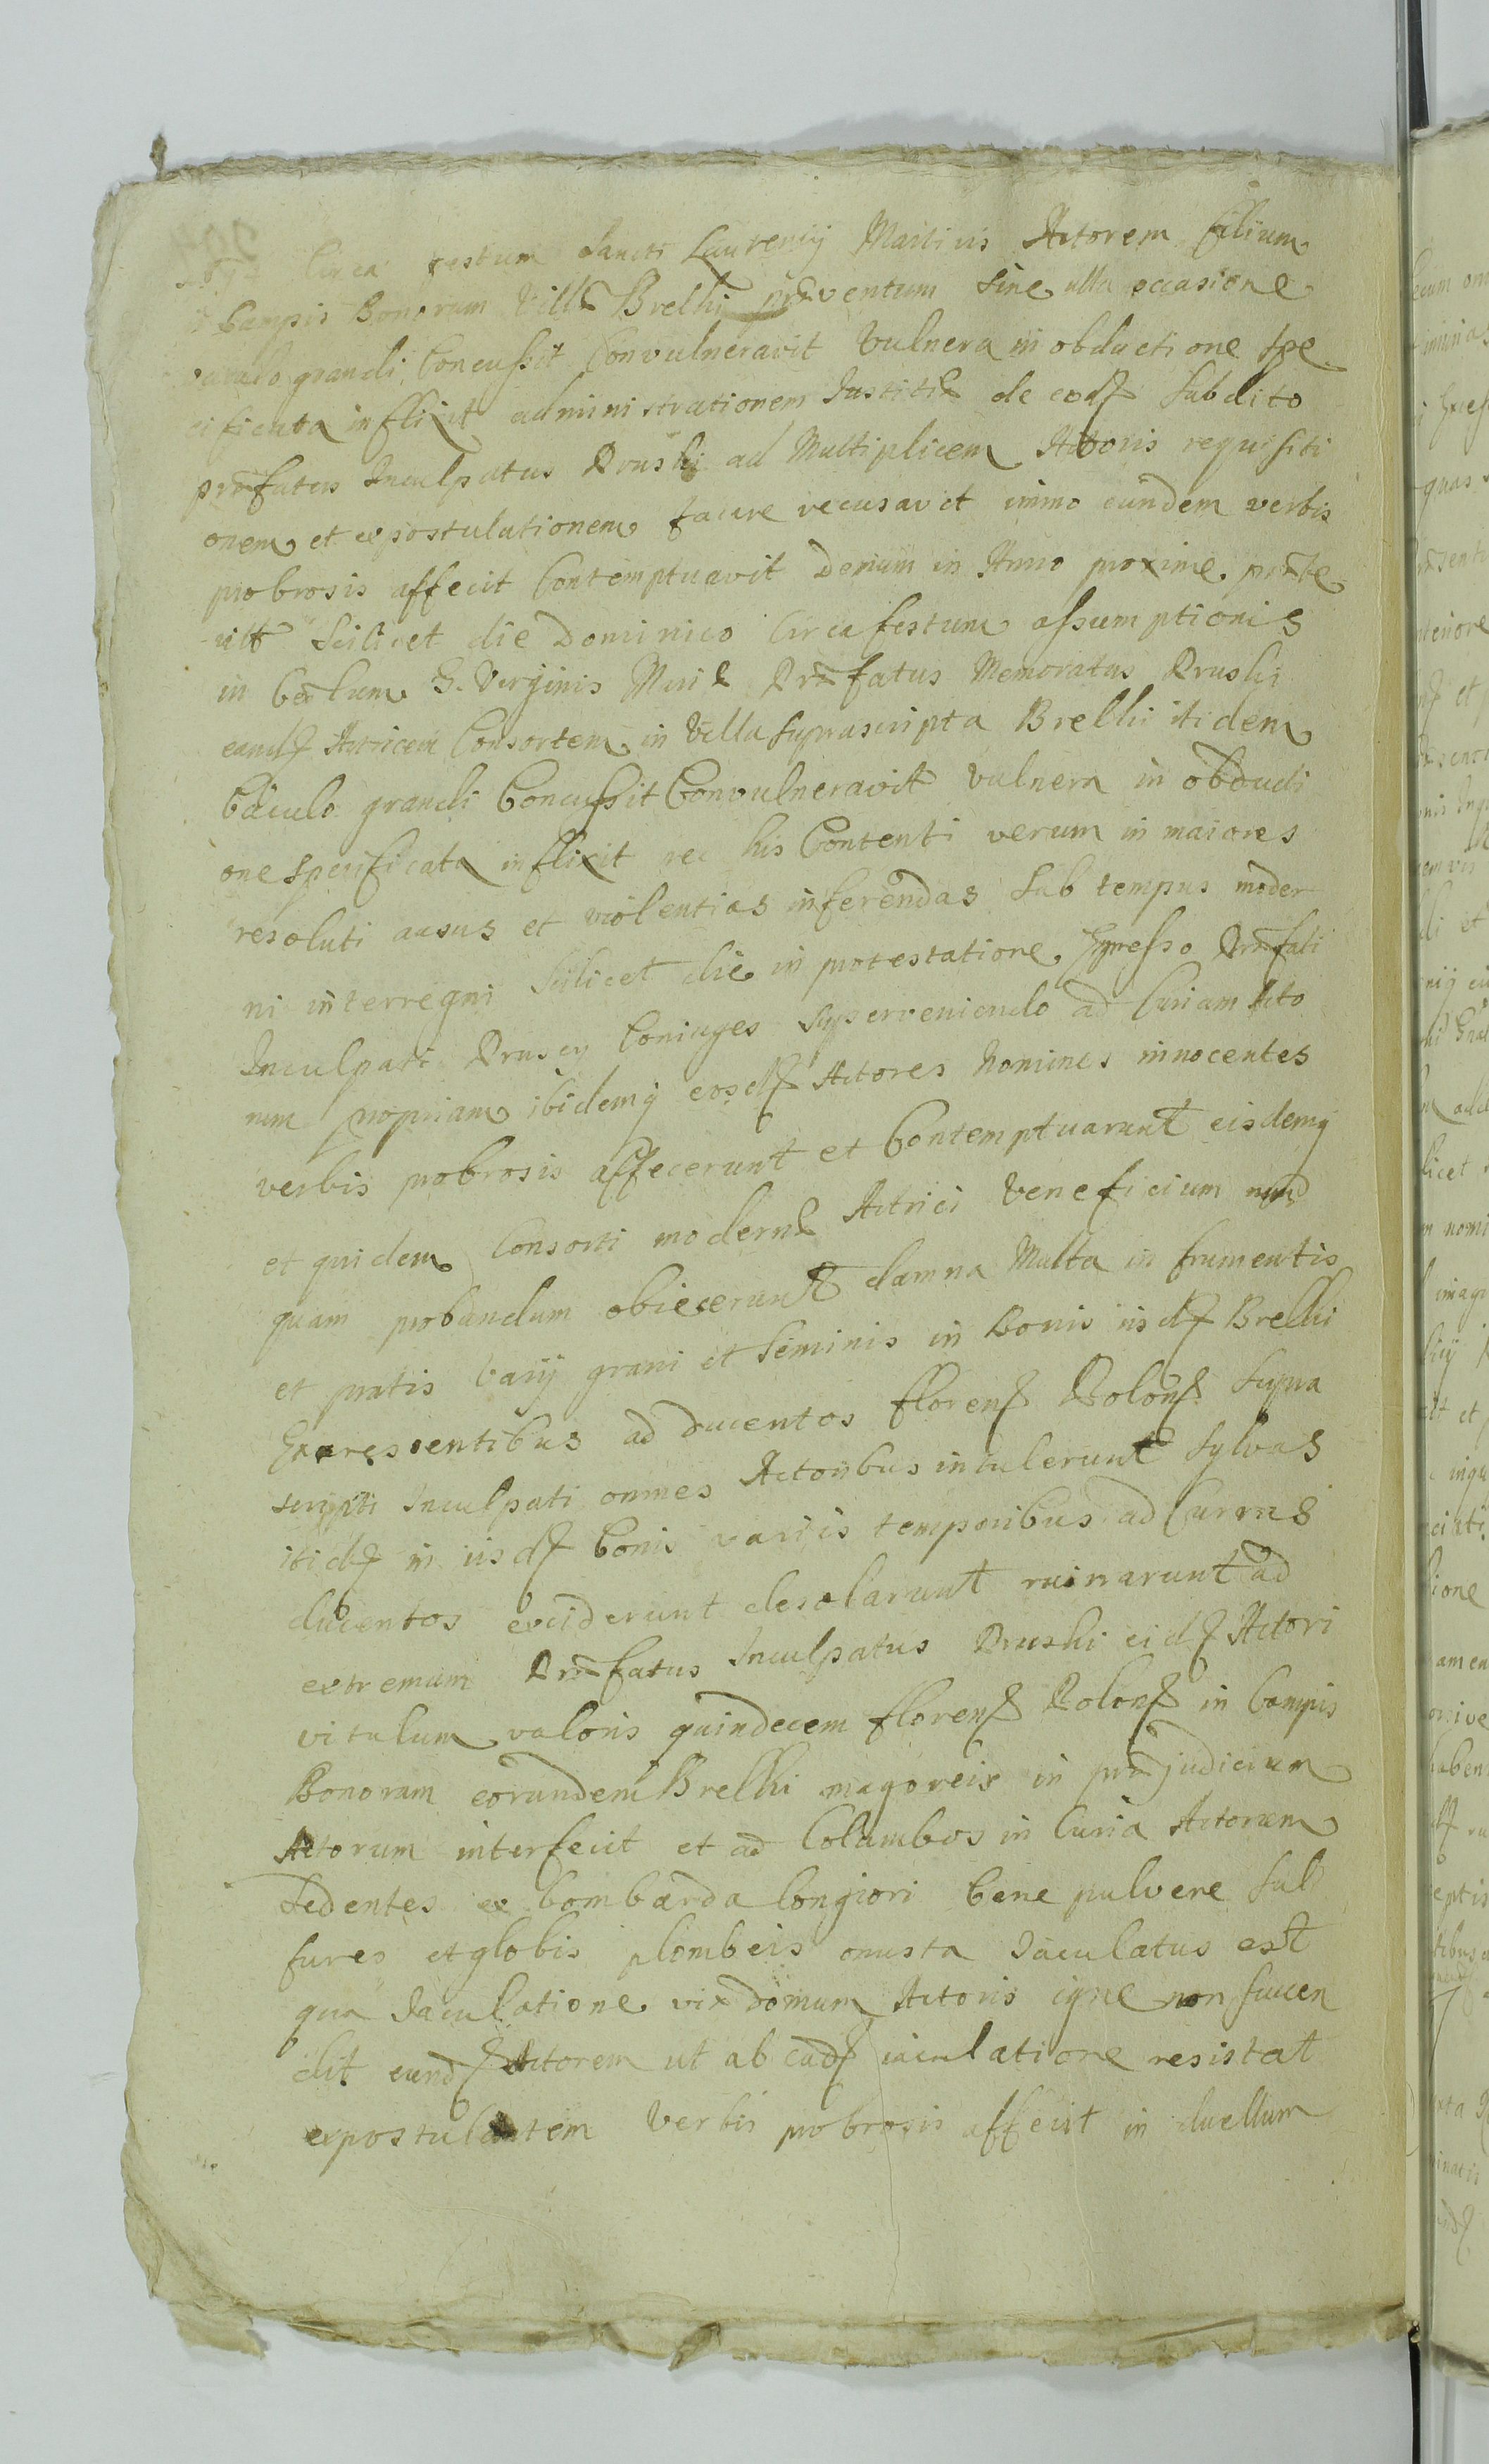 Circa festum Sancti Laurentij Martiris Actorem filium
Campis Bonorum Villæ Brelki præventum Sine ulla occasione
baculo grandi Concussit Convulneravit Vulnera in obductione spe
cificata inflixit administrationem Justitiæ de eod Subdito
præfatus Inculpatus Pruski ad Multiplicem Actoris requisiti
onem et expostulationem facere recusavit immo eundem verbis
probrosis affecit Contemptuavit Demum in Anno proxime præte
Scilicet die Dominico Circa festum assumptionis
in Cœlum S. Virginis Mariæ Præfatus Memoratus Pruski
eand Actricem Consortem in Villa suprascripta Brelki itidem
baculo grandi Concussit Convulneravit Vulnera in obducti
one specificata inflixit nec his Contenti verum in maiores
resoluti ausus et violentias inferendas Sub tempus moder
ni interregni Scilicet die in protestatione Expresso Præfati
Inculpati Pruscy Coniuges superveniendo ad Curiam Acto
rum propriam ibidemq eosd Actores homines innocentes
verbis probrosis affecerunt et Contemptuarunt eisdemq
et quidem Consorti modernæ Actrici Veneficium nun
quam probandum obiecerunt damna Multa in frumentis
et pratis varij grani et Seminis in Bonis iisd Brelki
Excrescentibus ad ducentos floren Polon supra
scripti Inculpati omnes Actoribus intulerunt Sylvas
itid in iisd bonis variis temporibus ad Currus
ducentos exciderunt desolarunt ruinarunt ad
extremum Præfatus Inculpatus Pruski eid Actori
vitulum valoris quindecem floren Polon in Campis
Bonorum eorundem Brelki in præjudicium
Actorum interfecit et ad Columbos in Curia Actorum
Sedentes ex bombarda longiori bene pulvere Sul
fureo et globis plombeis onusta Jaculatus est
qua Jaculatione vix domum Actoris igne non succen
dit eund Actorem ut ab ead iaculatione resistat
expostulantem Verbis probrosis affecit in duellum